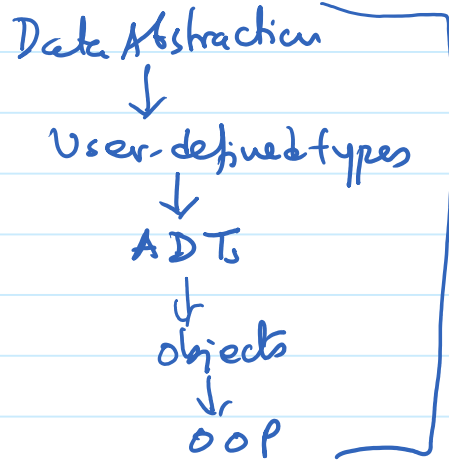 Data Abstraction
User-defined types
ADTs
objects
OOP